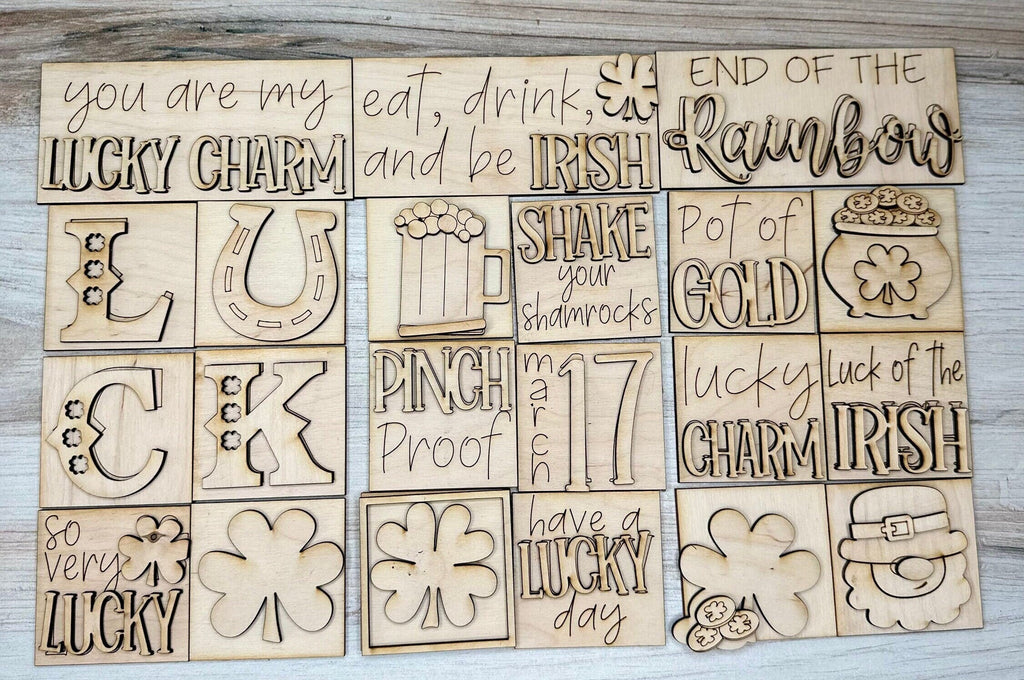 you are my
LUCKY CHARM
eat, drink,
and be IRISH
END OF THE
Rainbow
L U
C K
SHAKE
your
shamrocks
Pot of
GOLD
PINCH
Proof
march
17
lucky
CHARM
Luck of the
IRISH
so
very
LUCKY
have a
LUCKY
day